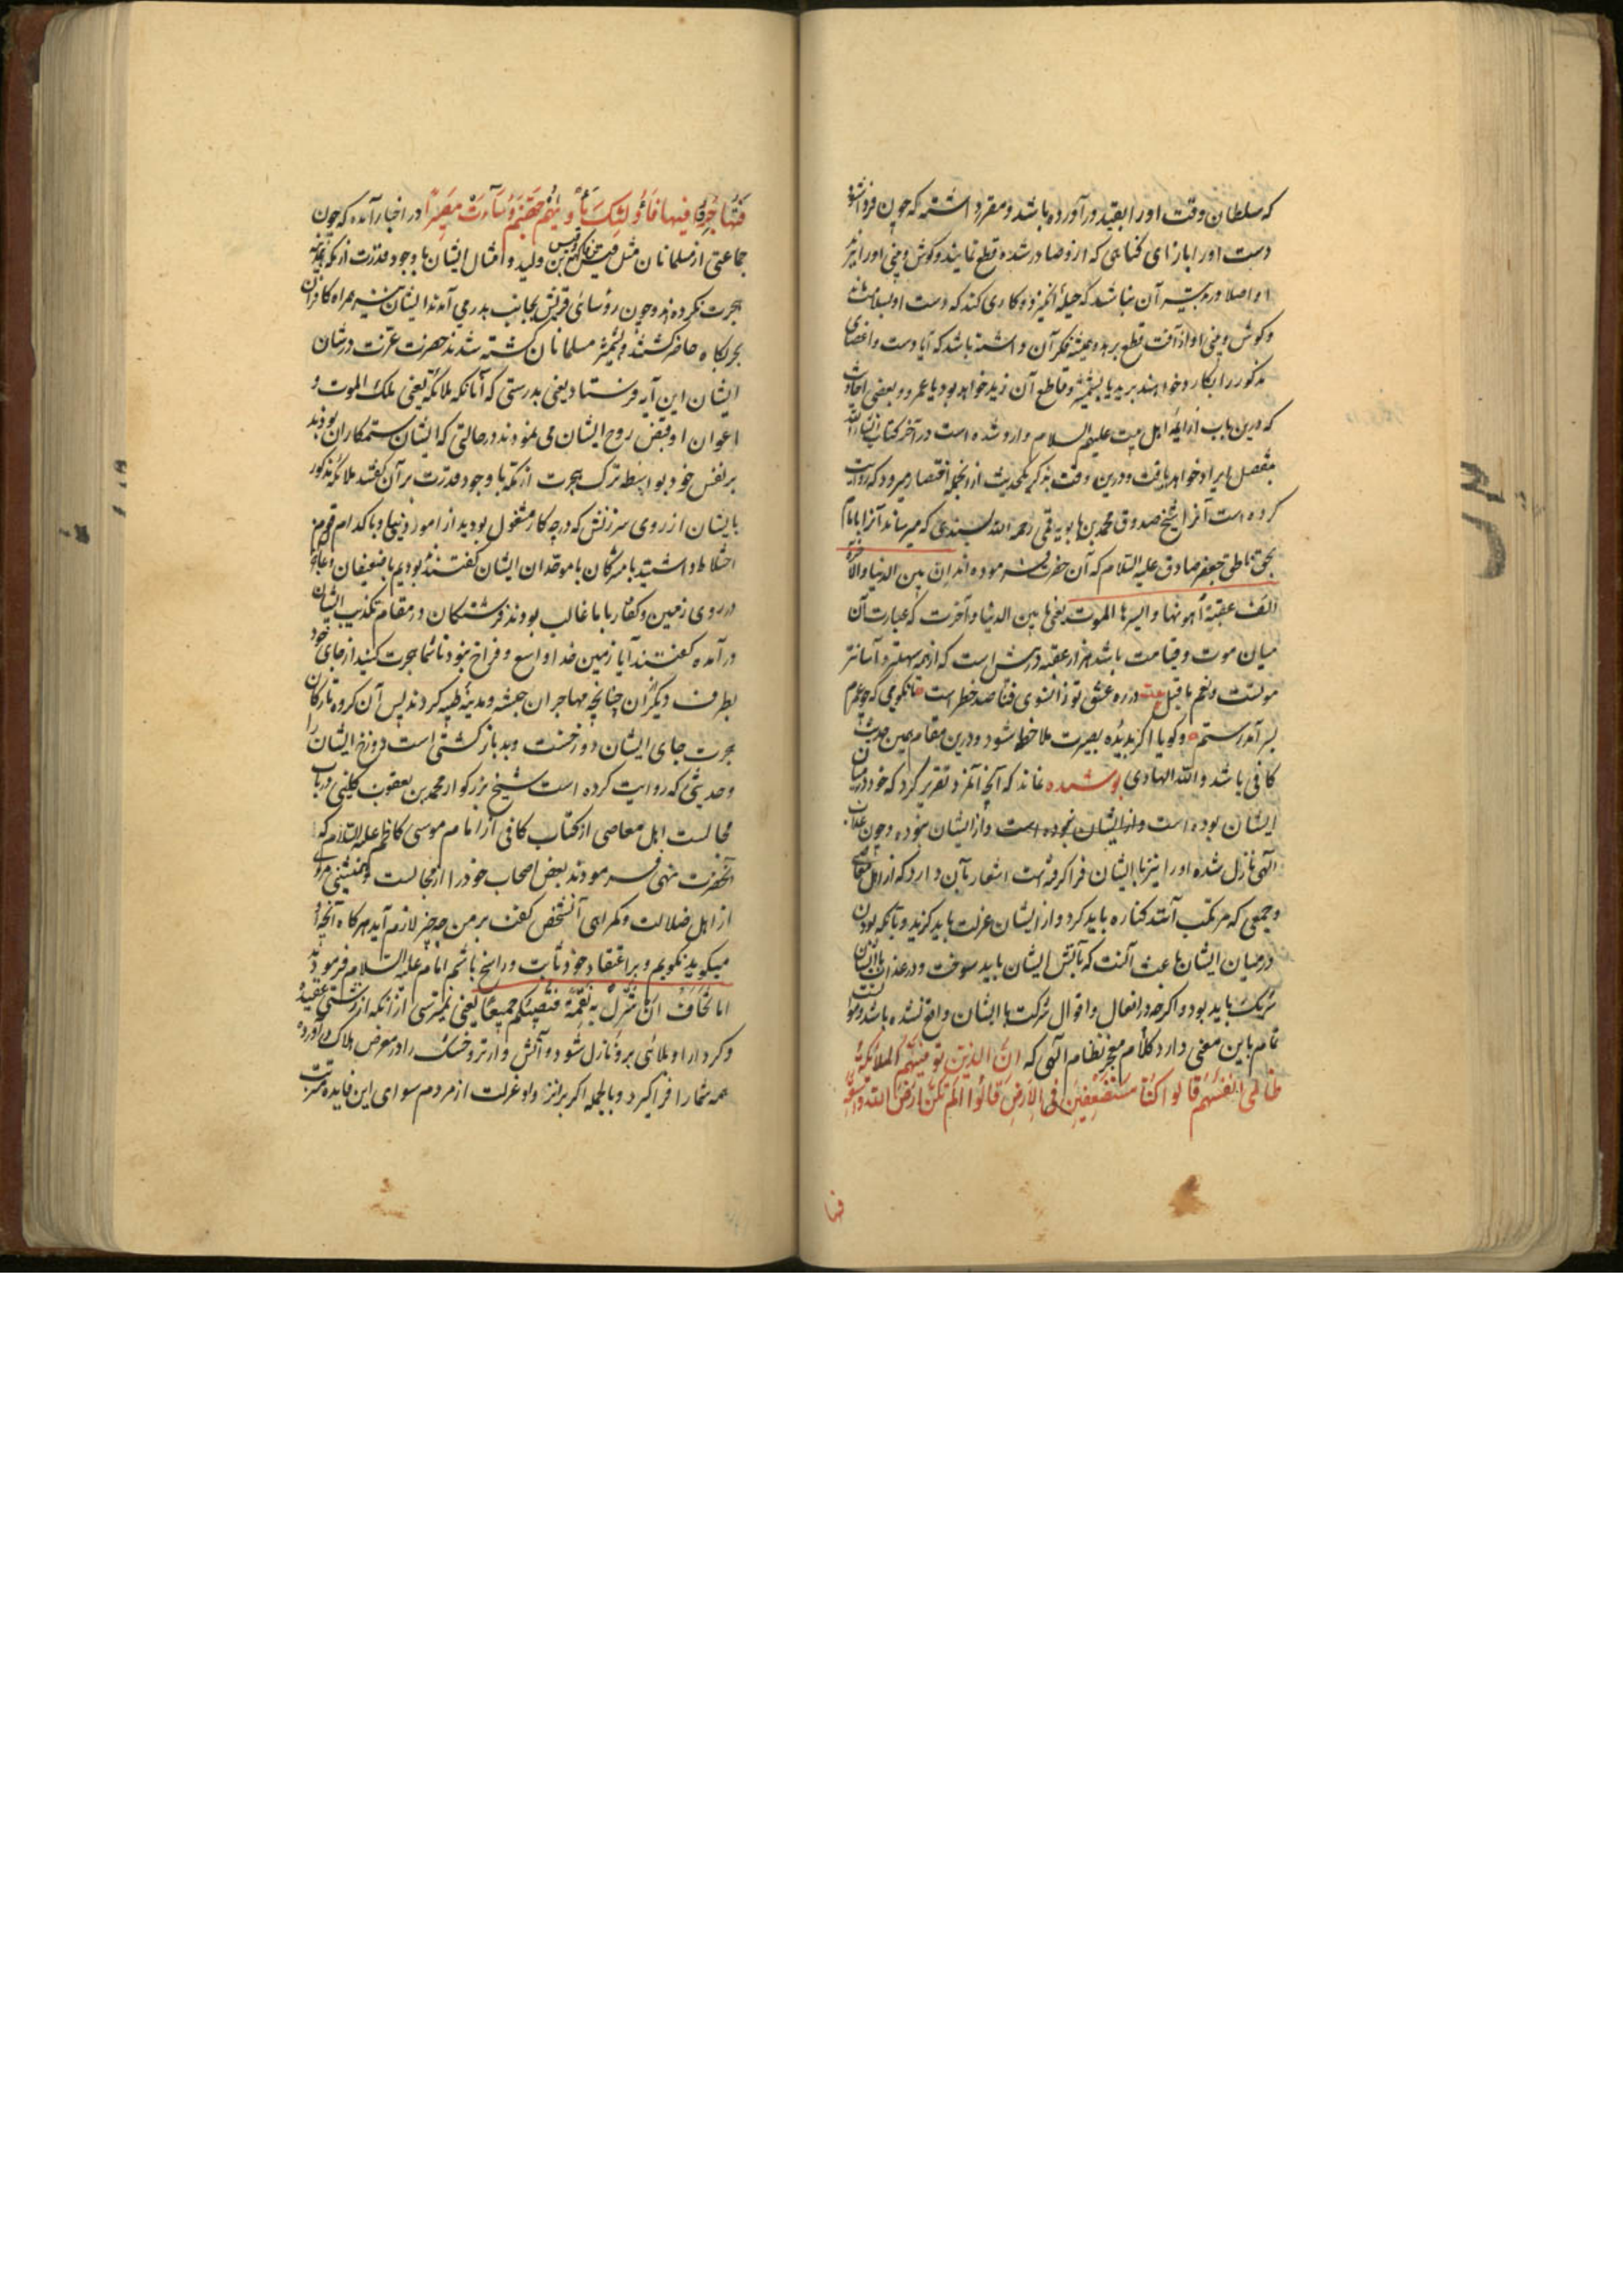 که سلطان وقت او را بقید در آورده باشد و مقرر داشته که چون فردا شود
دست او را بازای گناهی که ازو صادر شده قطع نمایند و گوش و بینی او را نیز
او اصلا در تدبیر آن نباشد که حیله انگیزد و کاری کند که دست او بسلامت ماند
و گوش و بینی او از آفت قطع برهد و همیشه بفکر آن داشته باشد که آیا دست و اعضای
مذکور را بکارد خواهند برید یا بشمشیر و قاطع آن زید خواهد بود یا عمرو و بعضی احادیث
که درین باب از ایمهٔ اهل بیت علیهم السلام وارد شده است در آخر کتاب انشاء الله
مفصل ایراد خواهد یافت و درین وقت بذکر یکحدیث از انجمله اقتصار میرود که روایت
کرده است آنرا شیخ صدوق محمد بن بابویه قمی رحمه الله بسندی که میرساند آنرا بامام
بحق ناطق جعفر صادق علیه السلام که آن حضرت فرموده اند ان بین الدنیا والآخرة
الف عقبة أهونها و ایسرها الموت یعنی ما بین الدنیا و آخرت که عبارت آن
میان موت و قیامت باشد هزار عقبه در پیش است که از همه سهلتر و آسانتر
موتست و نعم ما قیل بیت در ره عشق تو زانسوی فنا صد خطر است تا نگویی که چو عمرم
بسر آمد رستم و گویا اگر بدیدهٔ بصیرت ملاحظه شود و درین مقام همین حدیث
کافی باشد والله الهادی پوشیده نماند که آنچه آنمرد تقریر کرد که خود در میان
ایشان بوده است و از ایشان نبوده است و از ایشان نبوده و چون عذاب
الهی نازل شده او را نیز با ایشان فرا گرفته است اشعار بآن دارد که از اهل معاصی
و جمعی که مرتکب آنند کناره باید کرد و از ایشان عزلت باید گزید و بآنکه بودن
در میان ایشان باعث آنست که بآتش ایشان باید سوخت و در عذاب با ایشان
شریک باید بود و اگرچه در افعال و اقوال شرکت با ایشان واقع نشده باشد و موافقت
تمام باین معنی دارد کلام معجز نظام الهی که ان الذین توفیهم الملائکة
ظالمی انفسهم قالوا کنا مستضعفین فی الارض قالوا الم تکن ارض الله واسعة
فتها
فتهاجروا فیها فأولئک مأویهم جهنم وساءت مصیرا در اخبار آمده که چون
جماعتی از مسلمانان مثل قیس بن فاکه و قیس بن ولید و امثال ایشان با وجود قدرت از مکه بمدینه
هجرت نکرده بودند و چون رؤسای قریش بجانب بدر می آمدند ایشان نیز همراه کافران
بحربگاه حاضر گشتند و بشمشیر مسلمانان کشته شدند حضرت عزت در شان
ایشان این آیه فرستاد یعنی بدرستی که آنانکه ملائکه یعنی ملک الموت و
اعوان او قبض روح ایشان می نمودند در حالتی که ایشان ستمکاران بودند
بر نفس خود بواسطه ترک هجرت از مکه با وجود قدرت بر آن گفتند ملائکه مذکور
بایشان از روی سرزنش که در چه کار مشغول بودید از امور دینها و با کدام قوم
اختلاط داشتید با مشرکان یا موحدان ایشان گفتند بودیم ما ضعیفان و عاجز
در روی زمین و کفار با ما غالب بودند فرشتگان در مقام تکذیب ایشان
در آمده گفتند آیا زمین خدا واسع و فراخ نبود تا شما هجرت کنید از جای خود
بطرف دیگر آن چنانچه مهاجران حبشه و مدینه طیبه کردند پس آن گروه تارکان
هجرت جای ایشان دوزخست و بد بازگشتی است دوزخ ایشان را
و حدیثی که روایت کرده است شیخ بزرگوار محمد بن یعقوب کلینی در باب
مجالست اهل معاصی از کتاب کافی آنرا از امام موسی کاظم علیه السلام که
آنحضرت نهی فرمودند بعض اصحاب خود را از مجالست و همنشینی مردی
از اهل ضلالت و گمراهی آنشخص گفت بر من چه چیز لازم آید هرگاه آنچه او
میگوید نگویم و بر اعتقاد خود ثابت و راسخ باشم امام علیه السلام فرمودند
اما تخاف ان تنزل به نقمة فتصیبکم جمیعا یعنی نمیترسی از آنکه از زشتی عقیده
و کردار او بلائی برو نازل شود و آتش وار تر و خشک را در معرض هلاک در آورده
همه شما را فرا گیرد و بالجمله اگر بر انزوا و عزلت از مردم سوای این فایده مترتب